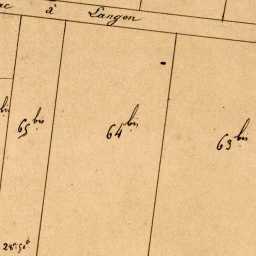 ac à Langon
bis
65 bis
64 bis
63 bis